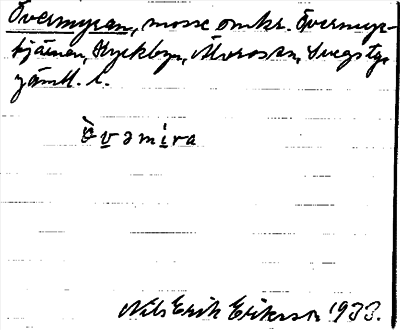 Övermyran, mosse omkr. Övermyr-
tjärnen, Kyrkbyn, Älvros sn, Svegs tg.
Jämtl. l.
ö̀vəmira
Nils Erik Eriksson 1933.